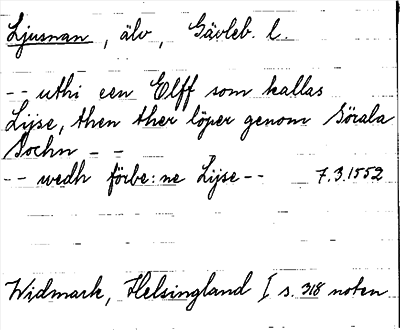 Ljusnan, älv, Gävleb. l.
-- uthi een Elff som kallas
Lijse, then ther löper genom Sörala
Sochn --
-- wedh förbe:ne Lijse -- 7.3.1552
Widmark, Helsingland I s. 318 noten